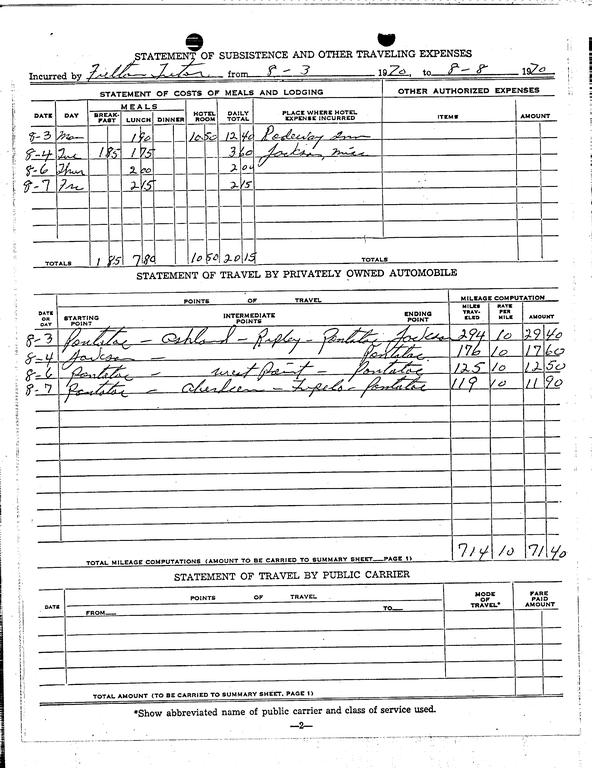 STATEMENT OF SUBSISTENCE AND OTHER TRAVELING EXPENSES
Incurred by from 8-3 1970, to 8-8 1970
STATEMENT OF COSTS OF MEALS AND LODGING OTHER AUTHORIZED EXPENSES
DATE DAY MEALS BREAK-FAST LUNCH DINNER HOTEL ROOM DAILY TOTAL PLACE WHERE HOTEL EXPENSE INCURRED ITEMS AMOUNT
8-3 Mon 1 90 10 50 12 40 Rodeway Inn
8-4 Tue 1 85 1 75 3 60 Jackson, Miss
8-6 Thur 2 00 2 00
8-7 Fri 2 15 2 15
TOTALS 1 85 7 80 10 50 20 15 TOTALS
STATEMENT OF TRAVEL BY PRIVATELY OWNED AUTOMOBILE
POINTS OF TRAVEL MILEAGE COMPUTATION
DATE OR DAY STARTING POINT INTERMEDIATE POINTS ENDING POINT MILES TRAV-ELED RATE PER MILE AMOUNT
8-3 Pontotoc - Ashland - Ripley - Pontotoc Jackson 294 10 29 40
8-4 Jackson - Pontotoc 176 10 17 60
8-6 Pontotoc - West Point - Pontotoc 125 10 12 50
8-7 Pontotoc - Aberdeen - Tupelo - Pontotoc 119 10 11 90
TOTAL MILEAGE COMPUTATIONS (AMOUNT TO BE CARRIED TO SUMMARY SHEET—PAGE 1) 714 10 71 40
STATEMENT OF TRAVEL BY PUBLIC CARRIER
DATE POINTS OF TRAVEL MODE OF TRAVEL* FARE PAID AMOUNT
FROM— TO—
TOTAL AMOUNT (TO BE CARRIED TO SUMMARY SHEET, PAGE 1)
*Show abbreviated name of public carrier and class of service used.
—2—